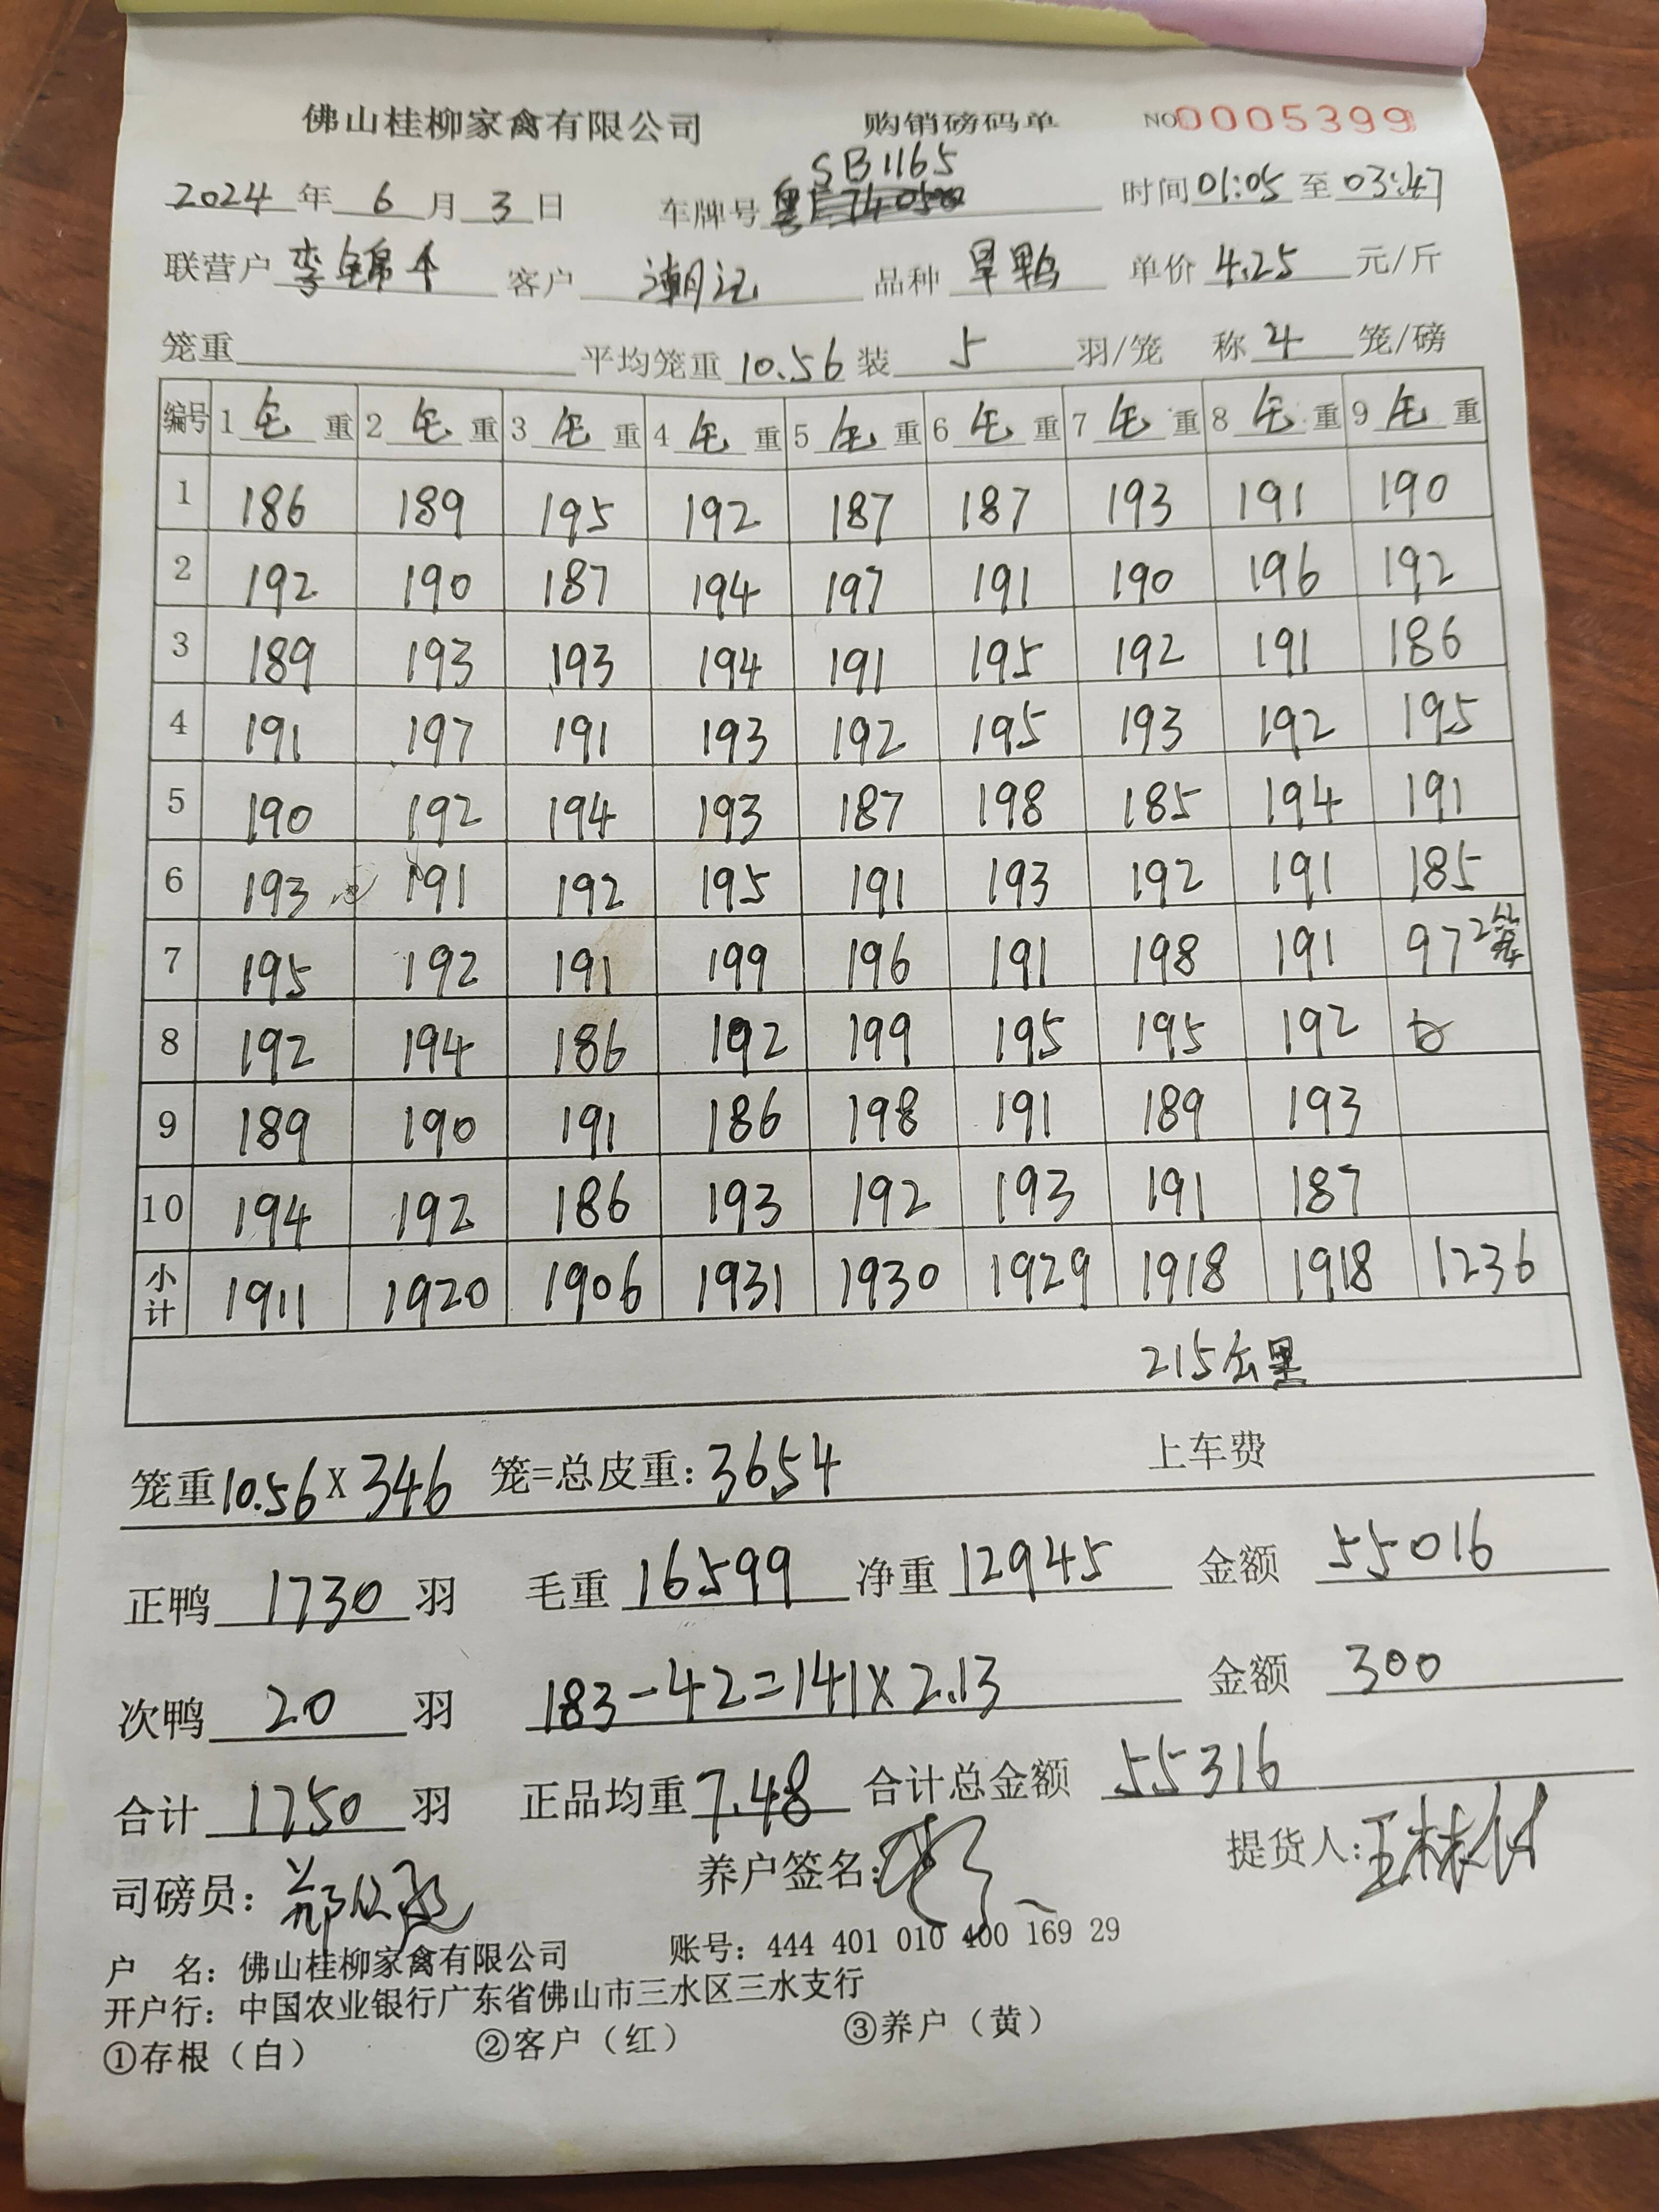 佛山桂柳家禽有限公司 购销磅码单 NO 0005399
SB1165
2024 年 6 月 3 日 车牌号 时间 01:05 至 03:47
联营户 李锦 客户 潮记 品种 旱鸭 单价 4.25 元/斤
笼重 平均笼重 10.56 装 5 羽/笼 称 4 笼/磅
编号 1 毛 重 2 毛 重 3 毛 重 4 毛 重 5 毛 重 6 毛 重 7 毛 重 8 毛 重 9 毛 重
1 186 189 195 192 187 187 193 191 190
2 192 190 187 194 197 191 190 196 192
3 189 193 193 194 191 195 192 191 186
4 191 197 191 193 192 195 193 192 195
5 190 192 194 193 187 198 185 194 191
6 193 191 192 195 191 193 192 191 185
7 195 192 191 199 196 191 198 191 97 2笼
8 192 194 186 192 199 195 195 192
9 189 190 191 186 198 191 189 193
10 194 192 186 193 192 193 191 187
小计 1911 1920 1906 1931 1930 1929 1918 1918 1236
215公里
笼重 10.56 X 346 笼=总皮重: 3654 上车费
正鸭 1730 羽 毛重 16599 净重 12945 金额 55016
次鸭 20 羽 183-42=141x2.13 金额 300
合计 1750 羽 正品均重 7.48 合计总金额 55316
司磅员: 养户签名: 提货人:
户 名: 佛山桂柳家禽有限公司 账号: 444 401 010 400 169 29
开户行: 中国农业银行广东省佛山市三水区三水支行
①存根（白） ②客户（红） ③养户（黄）